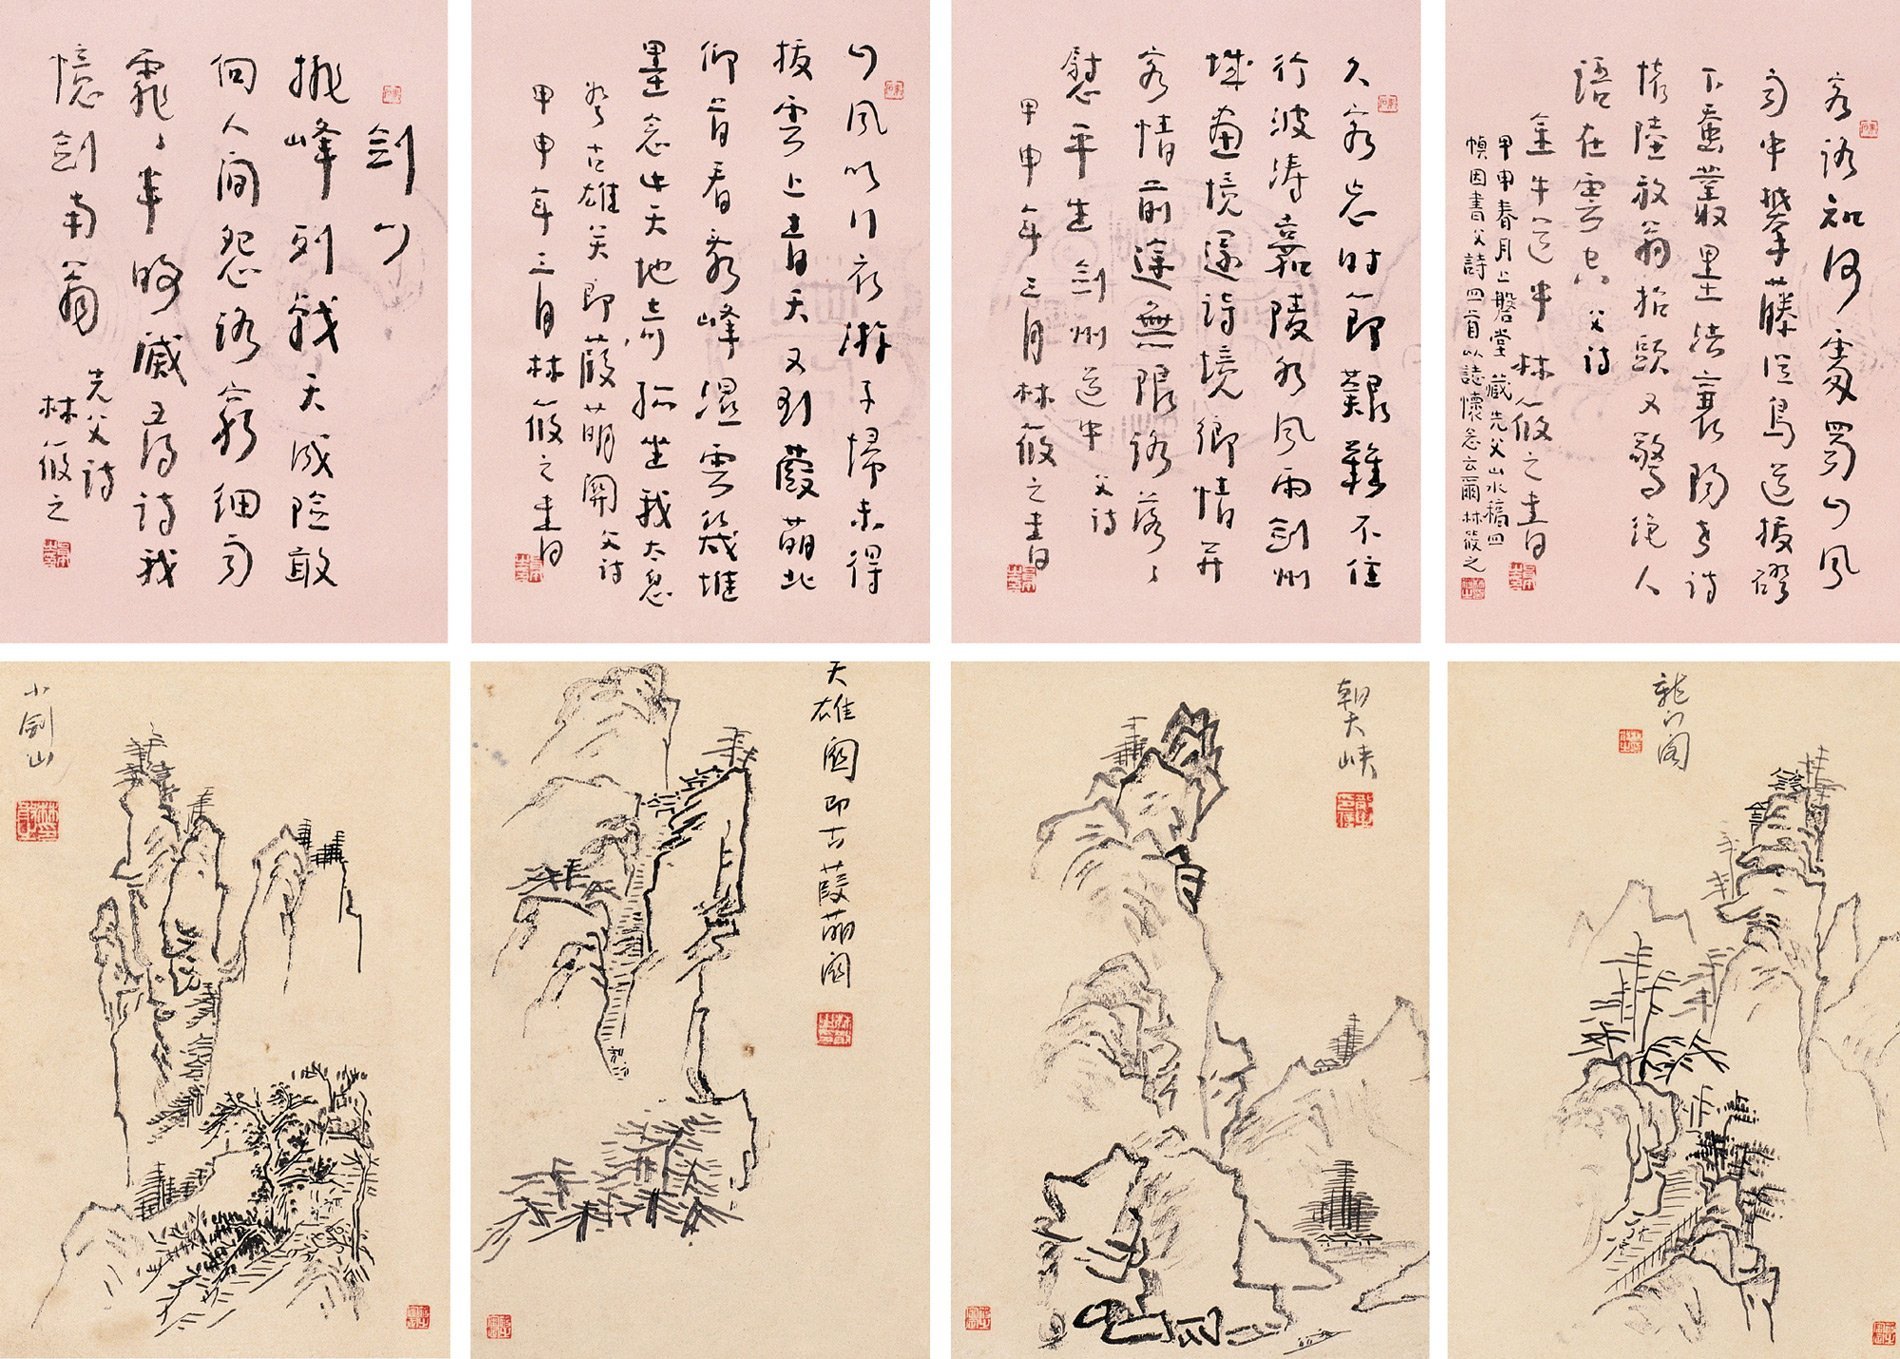 客路知何處蜀山風
雨中攀藤從鳥道援磴
下蚕叢墨法襄陽老詩
情陸放翁抬頭又驚絕人
語在雲空 父詩
金牛道中 林筱之書
甲申春月上磐堂藏先父山水稿四
幀因書父詩四首以誌懷念云爾林筱之
久客忘時節艱難不住
行波濤嘉陵水風雨劍州
城畫境還詩境鄉情并
客情前途無限路落落
慰平生 劍州道中 父詩
甲申年三月林筱之書
山風吹行衣游子歸未得
援雲上青天又到葭萌北
仰首看众峰濕雲幾堆
墨念此天地奇孤坐我太息
古雄關即葭萌關 父詩
甲申年三月林筱之書
劍山
排峰列戟天成險敢
向人間怨路窮細雨
霏霏半明滅尋詩我
憶劍南翁 先父詩
林筱之
龍門閣
朝天峽
天雄關即古葭萌關
小劍山